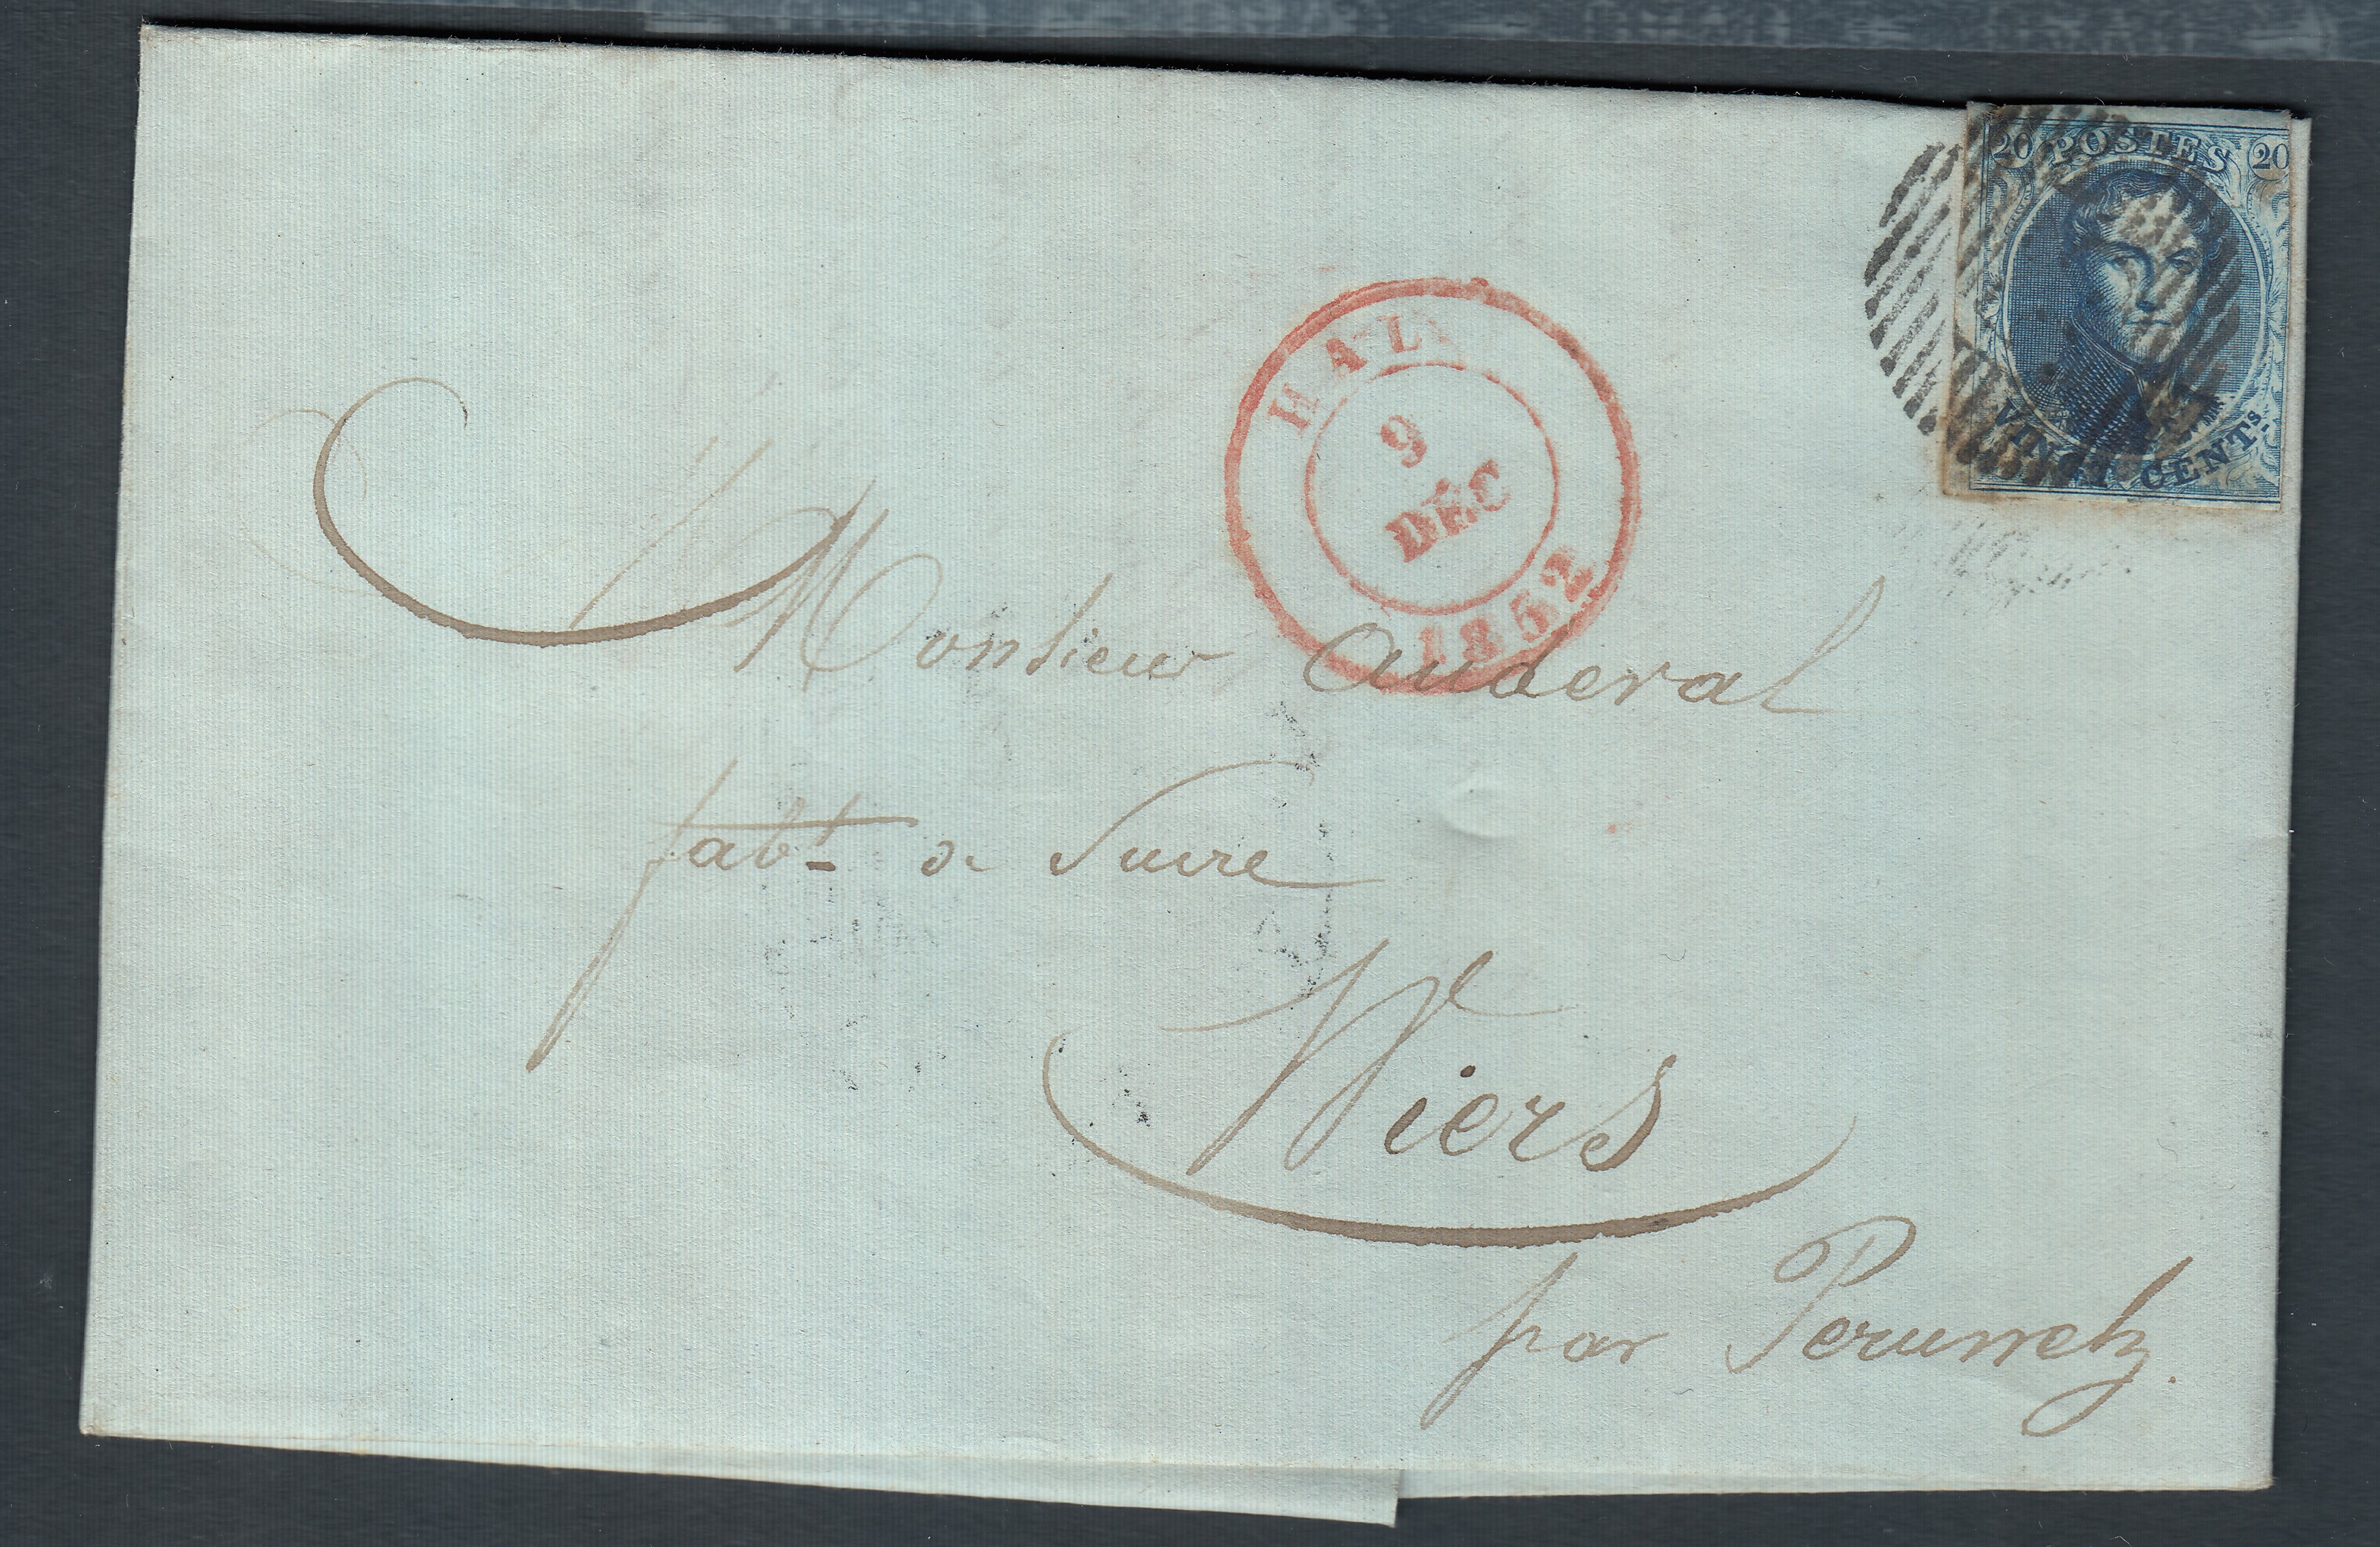 20 POSTES 20
VINGT CENTS.
HAL
9
DÉC
1852
Monsieur Auderal
fabt. de Sucre
Wiers
par Peruwelz.